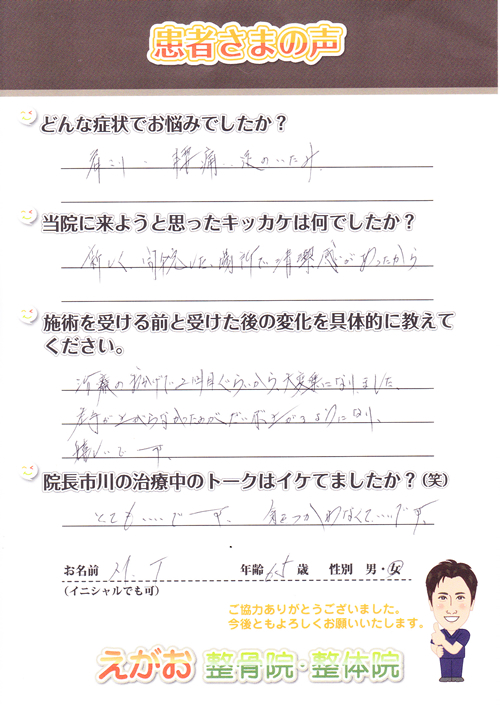 患者さまの声
どんな症状でお悩みでしたか？
肩こり、腰痛、足のいたみ
当院に来ようと思ったキッカケは何でしたか？
新しく開院した場所だし清潔感があったから
施術を受ける前と受けた後の変化を具体的に教えて
ください。
治療の 2回目ぐらいから大変楽になりました。
左手が上がらなかったのがだいぶ上がるようになり
嬉しいです。
院長市川の治療中のトークはイケてましたか？(笑)
とてもいいです。気をつかわなくていいです。
お名前 M.T 年齢 65 歳 性別 男・女
(イニシャルでも可)
ご協力ありがとうございました。
今後ともよろしくお願いいたします。
えがお 整骨院・整体院